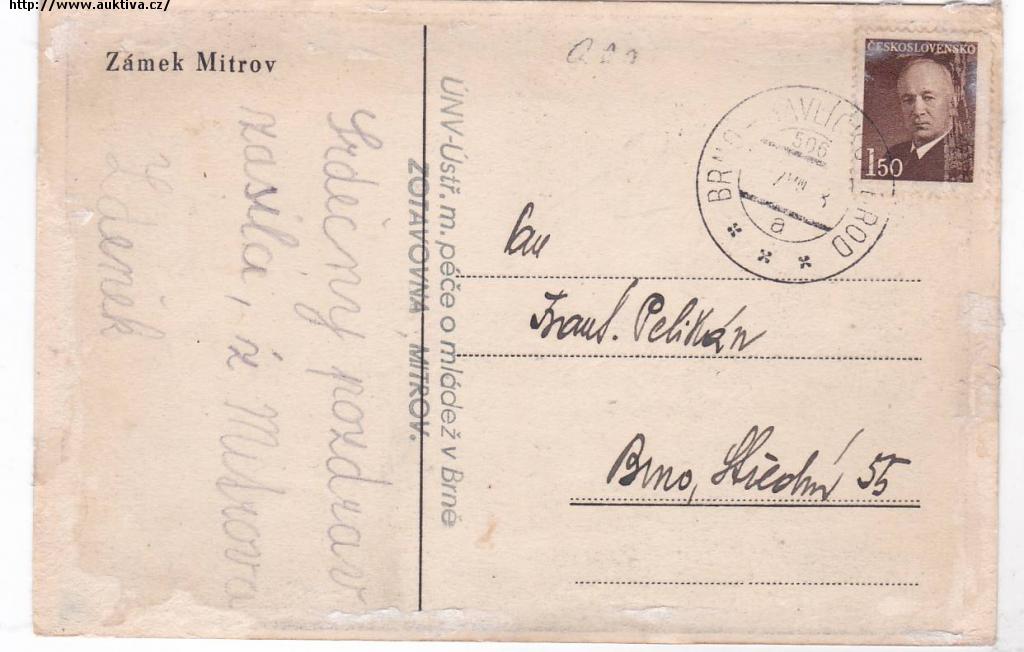 http://www.auktiva.cz/
Zámek Mitrov
Srdečný pozdrav
zasílá, z Mitrova
Zdeněk
ÚNV-Ústř. m. péče o mládež v Brně
ZOTAVOVNA , MITROV.
ČESKOSLOVENSKO
1 50
BRNO - HAVLÍČKŮV BROD
506
a
Pan
Frant. Pelikán
Brno, Střední 55